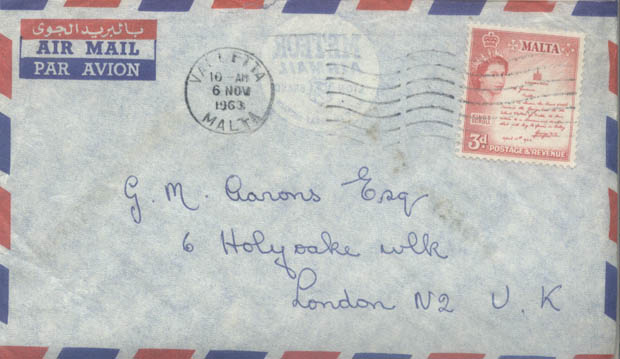 بالبريد الجوى
AIR MAIL
PAR AVION
VALLETTA
10 - AM
6 NOV
1963
MALTA
METEOR
AIR MAIL
MALTA
3d
POSTAGE & REVENUE
G. M. Aarons Esq
6 Holyoake wlk
London N2 U. K